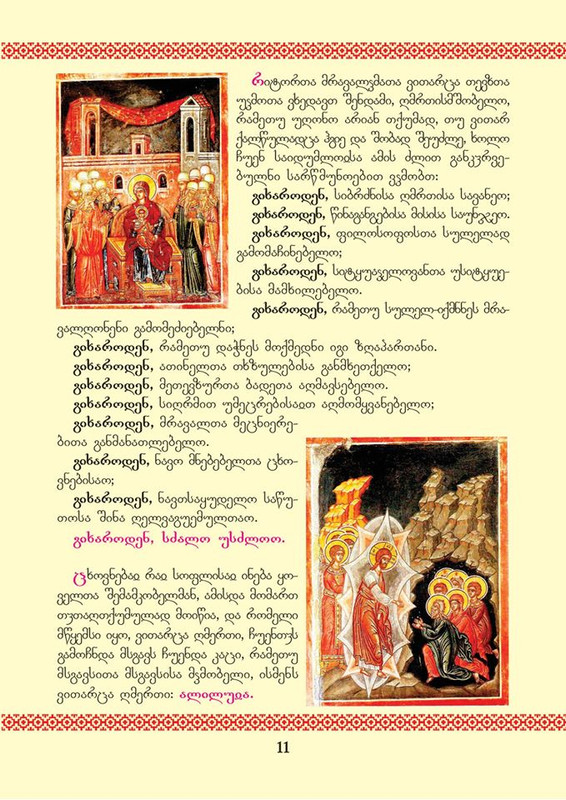 რიტორთა მრავალჴმათა ვითარცა თევზთა
უჴმოთა ვხედავთ შენდამი, ღმრთისმშობელო,
რამეთუ უღონო არიან თქუმად, თუ ვითარ
ქალწულადცა ჰგიე და შობად შეუძლე, ხოლო
ჩუენ საიდუმლოისა ამის ძლით განკჳრვე-
ბულნი სარწმუნოებით ვჴმობთ:
გიხაროდენ, სიბრძნისა ღმრთისა სავანეო;
გიხაროდენ, წინაგანგებისა მისისა საუნჯეო.
გიხაროდენ, ფილოსოფოსთა სულელად
გამომაჩინებელო;
გიხაროდენ, სიტყუაველოვანთა უსიტყუე-
ბისა მამხილებელო.
გიხაროდენ, რამეთუ სულელ-იქმნნეს მრა-
ვალღონენი გამომეძიებელნი;
გიხაროდენ, რამეთუ დაჭნეს მოქმედნი იგი ზღაპართანი.
გიხაროდენ, ათინელთა თხზულებისა განმხეთქელო;
გიხაროდენ, მეთევზურთა ბადეთა აღმავსებელო.
გიხაროდენ, სიღრმით უმეცრებისაჲთ აღმომყვანებელო;
გიხაროდენ, მრავალთა მეცნიერე-
ბითა განმანათლებელო.
გიხაროდენ, ნავო მნებებელთა ცხო-
ვნებისაო;
გიხაროდენ, ნავთსაყუდელო საწუ-
თოსა შინა ღელვაგუემულთაო.
გიხაროდენ, სძალო უსძლოო.
ცხოვნებაჲ რაჲ სოფლისაჲ ინება ყო-
ველთა შემამკობელმან, ამისდა მომართ
თჳთაღთქუმულად მოიწია, და რომელი
მწყემსი იყო, ვითარცა ღმერთი, ჩუენთჳს
გამოჩნდა მსგავს ჩუენდა კაცი, რამეთუ
მსგავსითა მსგავსისა მჴმობელი, ისმენს
ვითარცა ღმერთი: ალილუჲა.
11